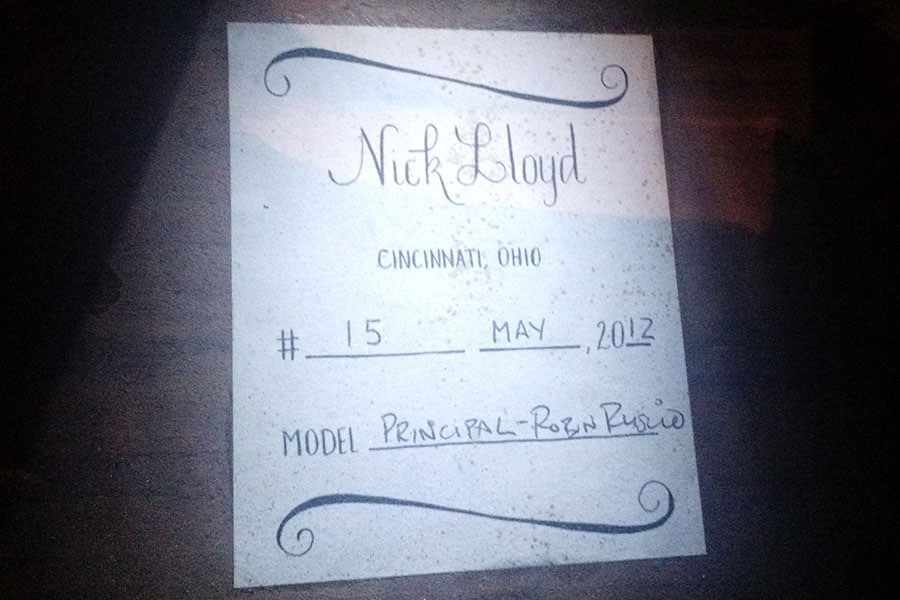 Nick Lloyd
CINCINNATI, OHIO
# 15 MAY, 2012
MODEL PRINCIPAL-ROBIN